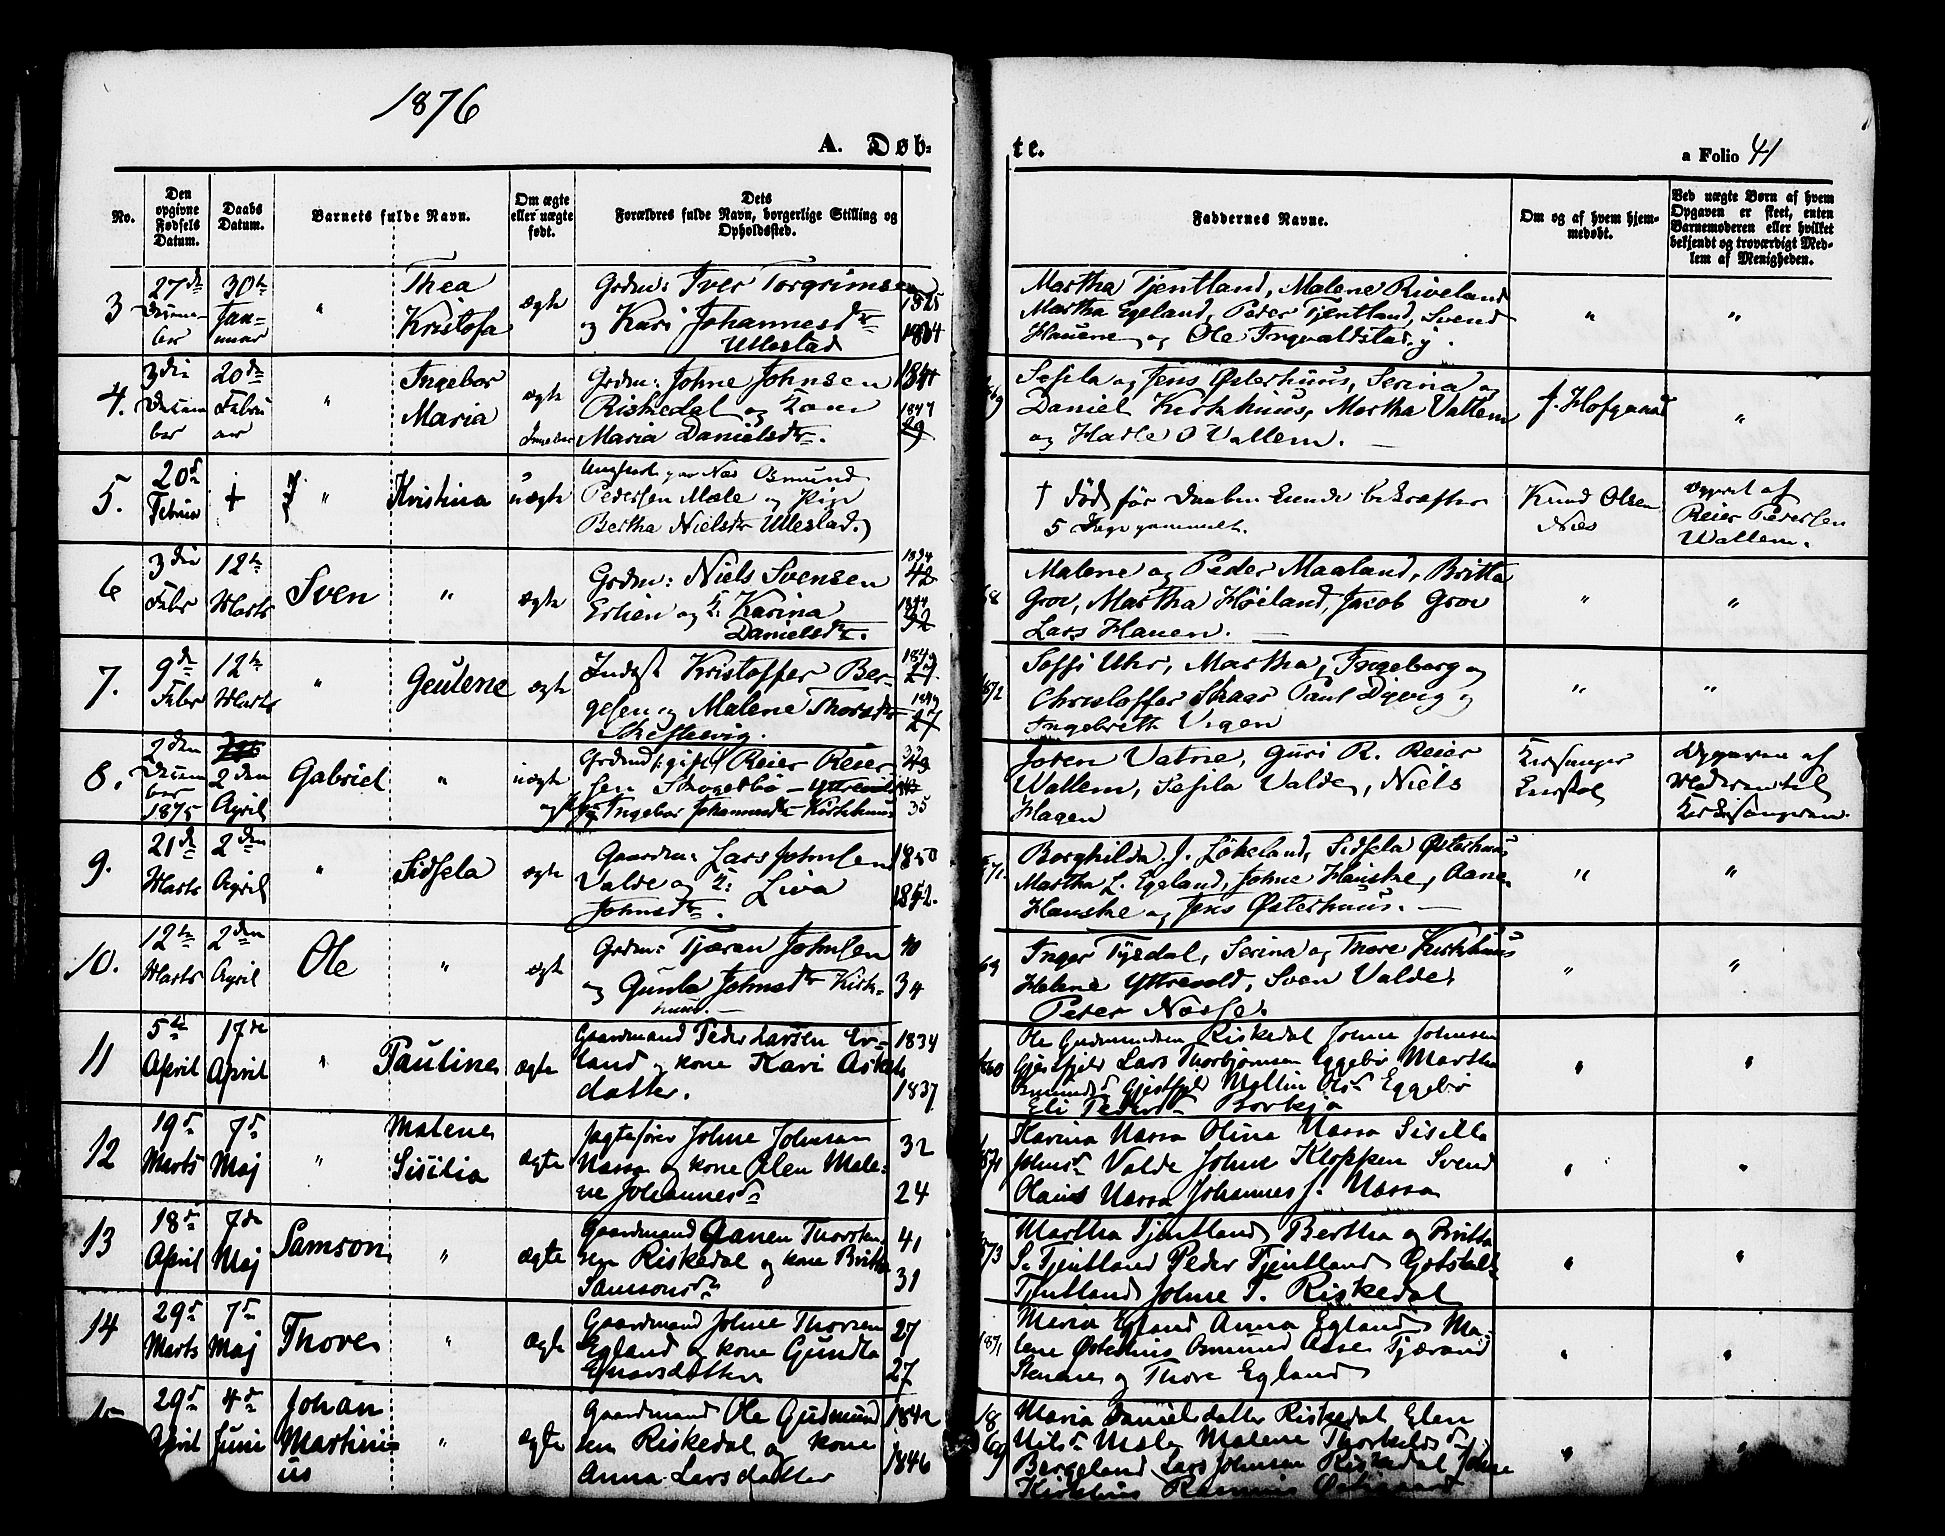 1876
A. Døb-
te.
a Folio 41
No.
Den
opgivne
Fødsels
Datum.
Daabs
Datum.
Barnets fulde Navn.
Om ægte
eller uægte
født.
Dets
Forældres fulde Navn, borgerlige Stilling og
Opholdssted.
Faddernes Navne.
Om og af hvem hjem-
medøbt.
Ved uægte Børn af hvem
Opgaven er skeet, enten
Barnemoderen eller hvilket
bekjendt og troværdigt Med-
lem af Menigheden.
3
27de
Decem-
ber
30te
Jan-
uar
"
Thea
Kristofa
ægte
Grdm: Iver Torgrimsen
og Kari Johannesdtr
Ullestad
1825
1834
Martha Tjentland, Malene Riveland
Martha Egeland, Peder Tjentland, Svend
Hauene og Ole Ingvaldstad
"
"
4.
3die
Decem
ber
20de
Febru
ar
"
Ingebor
Maria
ægte
Grdm: Johne Johnsen
Riskedal og
Maria Danielsdtr.
1847
Sesila og Jens Østerhuus, Serina og
Daniel Kirkhuus, Martha Vallem
og O Vallem.
"
5.
20de
Februar
+
"
Kristina
uægte
Osmund
Pedersen Mæle og Pige
Bertha Nielsdtr Ullestad.
† Død før Daaben kunde bekræftes
5 Dage gammelt.
Knud Olsen
Næs
af
Reier Pedersen
Wallem.
6
3die
Febr
12te
Marts
Sven
"
ægte
Grdm: Niels Svensen
Erlien og K: Karina
Danielsdtr.
42
32
Malene og Peder Maaland, Britta
Grov, Martha Høieland, Jacob Grov
Lars Hauen.
"
"
7.
9de
Febr
12te
Marts
"
Geulene
ægte
Indst Kristoffer Ber-
gesen og Malene Thorsdtr
27
27
Soffi Uhr, Martha, Ingeborg og
Christoffer Skaar Paul Digvig og
Ingebrith Vigen
"
"
8.
2den
Decem
ber
1875
2den
April
Gabriel
"
uægte
Grdmd (: gift) Reier Reier
sen Skogerbø
og Pige Ingebor Johannesdtr Kirkhuus
35
Joren Vatne, Guri R. Reier
Wallem, Sesila Valde, Niels
Hagen
Kirksanger
Opgaven af
Moderen til
Kirkesangeren.
9.
21de
Marts
2den
April
"
Sidsela
ægte
Gaardm: Lars Johnsen
Valde og K: Liva
Johnsdtr.
1850
1852.
Borghilda J. Løkeland, Sidsela Østerhuus
Martha L. Egeland, Johne Hauske, Aane
Hauske og Jens Østerhuus.
"
"
10.
12te
Marts
2den
April
Ole
"
ægt
Grdm: Tjæran Johnsen
og Gunla Johnsdtr Kirk-
huus.
40
34
Inger Tysdal, Serina og Thore Kirkhuus
Helene Yttrevold, Sven Valde,
Peter Næsse.
"
"
11
5te
April
17de
April
"
Pauline
ægte
Gaardmand Peder Larsen Er-
land og kone Kari Aslak
datter.
1834
1837
Ole Gudmundsen Riskedal Johne Johnsen
Gjestfjeld Lars Thorbjørnsen Eggebø Martha
Osmundsdr Gjestfjeld Mallin Olsdr Eggebø
Eli Pedersdr
"
"
12
19de
Marts
7de
Maj
"
Malene
Sisilia
ægte
Jagtefører Johne Johnsen
Næssa og kone Elen Male-
ne Johannesdr
32
24
Karina Næssa Olina Næssa Sisilla
Johnsdr Valde Johne Kloppen Svend
Olaus Næssa Johannes J. Næssa
"
"
13
18de
April
7de
Maj
Samson
"
ægte
Gaardmand Aanen Thorsten
sen Riskedal og kone Britha
Samsonsdr
41
31
Martha Tjentland Bertha og Britta
P. Tjentland Peder Tjentland Gotskalk
Tjentland Johne T. Riskedal
"
"
14
29de
Marts
7de
Maj
Thore
"
ægte
Gaardmand Johne Thorsen
Egland og kone Gundla
Ejnarsdatter
27
27
1871
Maria Egland Anna Egland Ma-
lene Østerhuus Osmund Aase Tjærand
og Thore Egland
"
"
15
29de
April
4de
Juni
Johan
Martini-
us
"
ægte
Gaardmand Ole Gudmund
sen Riskedal og kone
Anna Larsdatter
1842
1846
18
69
Maria Danielsdatter Riskedal Elen
Nilsdr Mæle Malene Thorkildsdr
Bergeland Lars Johnsen Riskedal Johne
Kirkhus Rasmus
"